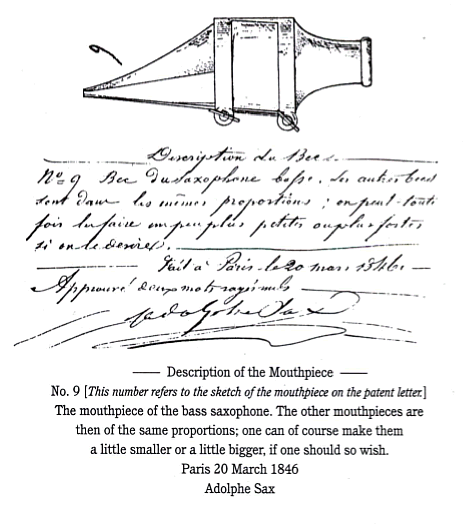 9
Description du Bec
Nº 9 Bec du saxophone basse. Les autres becs
sont dans les mêmes proportions ; on peut toute
fois les faire un peu plus petits ou plus fortes
si on le desire.
Fait à Paris le 20 mars 1846
Approuvé deux mots rayés nuls
Adolphe Sax
Description of the Mouthpiece
No. 9 [This number refers to the sketch of the mouthpiece on the patent letter.]
The mouthpiece of the bass saxophone. The other mouthpieces are
then of the same proportions; one can of course make them
a little smaller or a little bigger, if one should so wish.
Paris 20 March 1846
Adolphe Sax